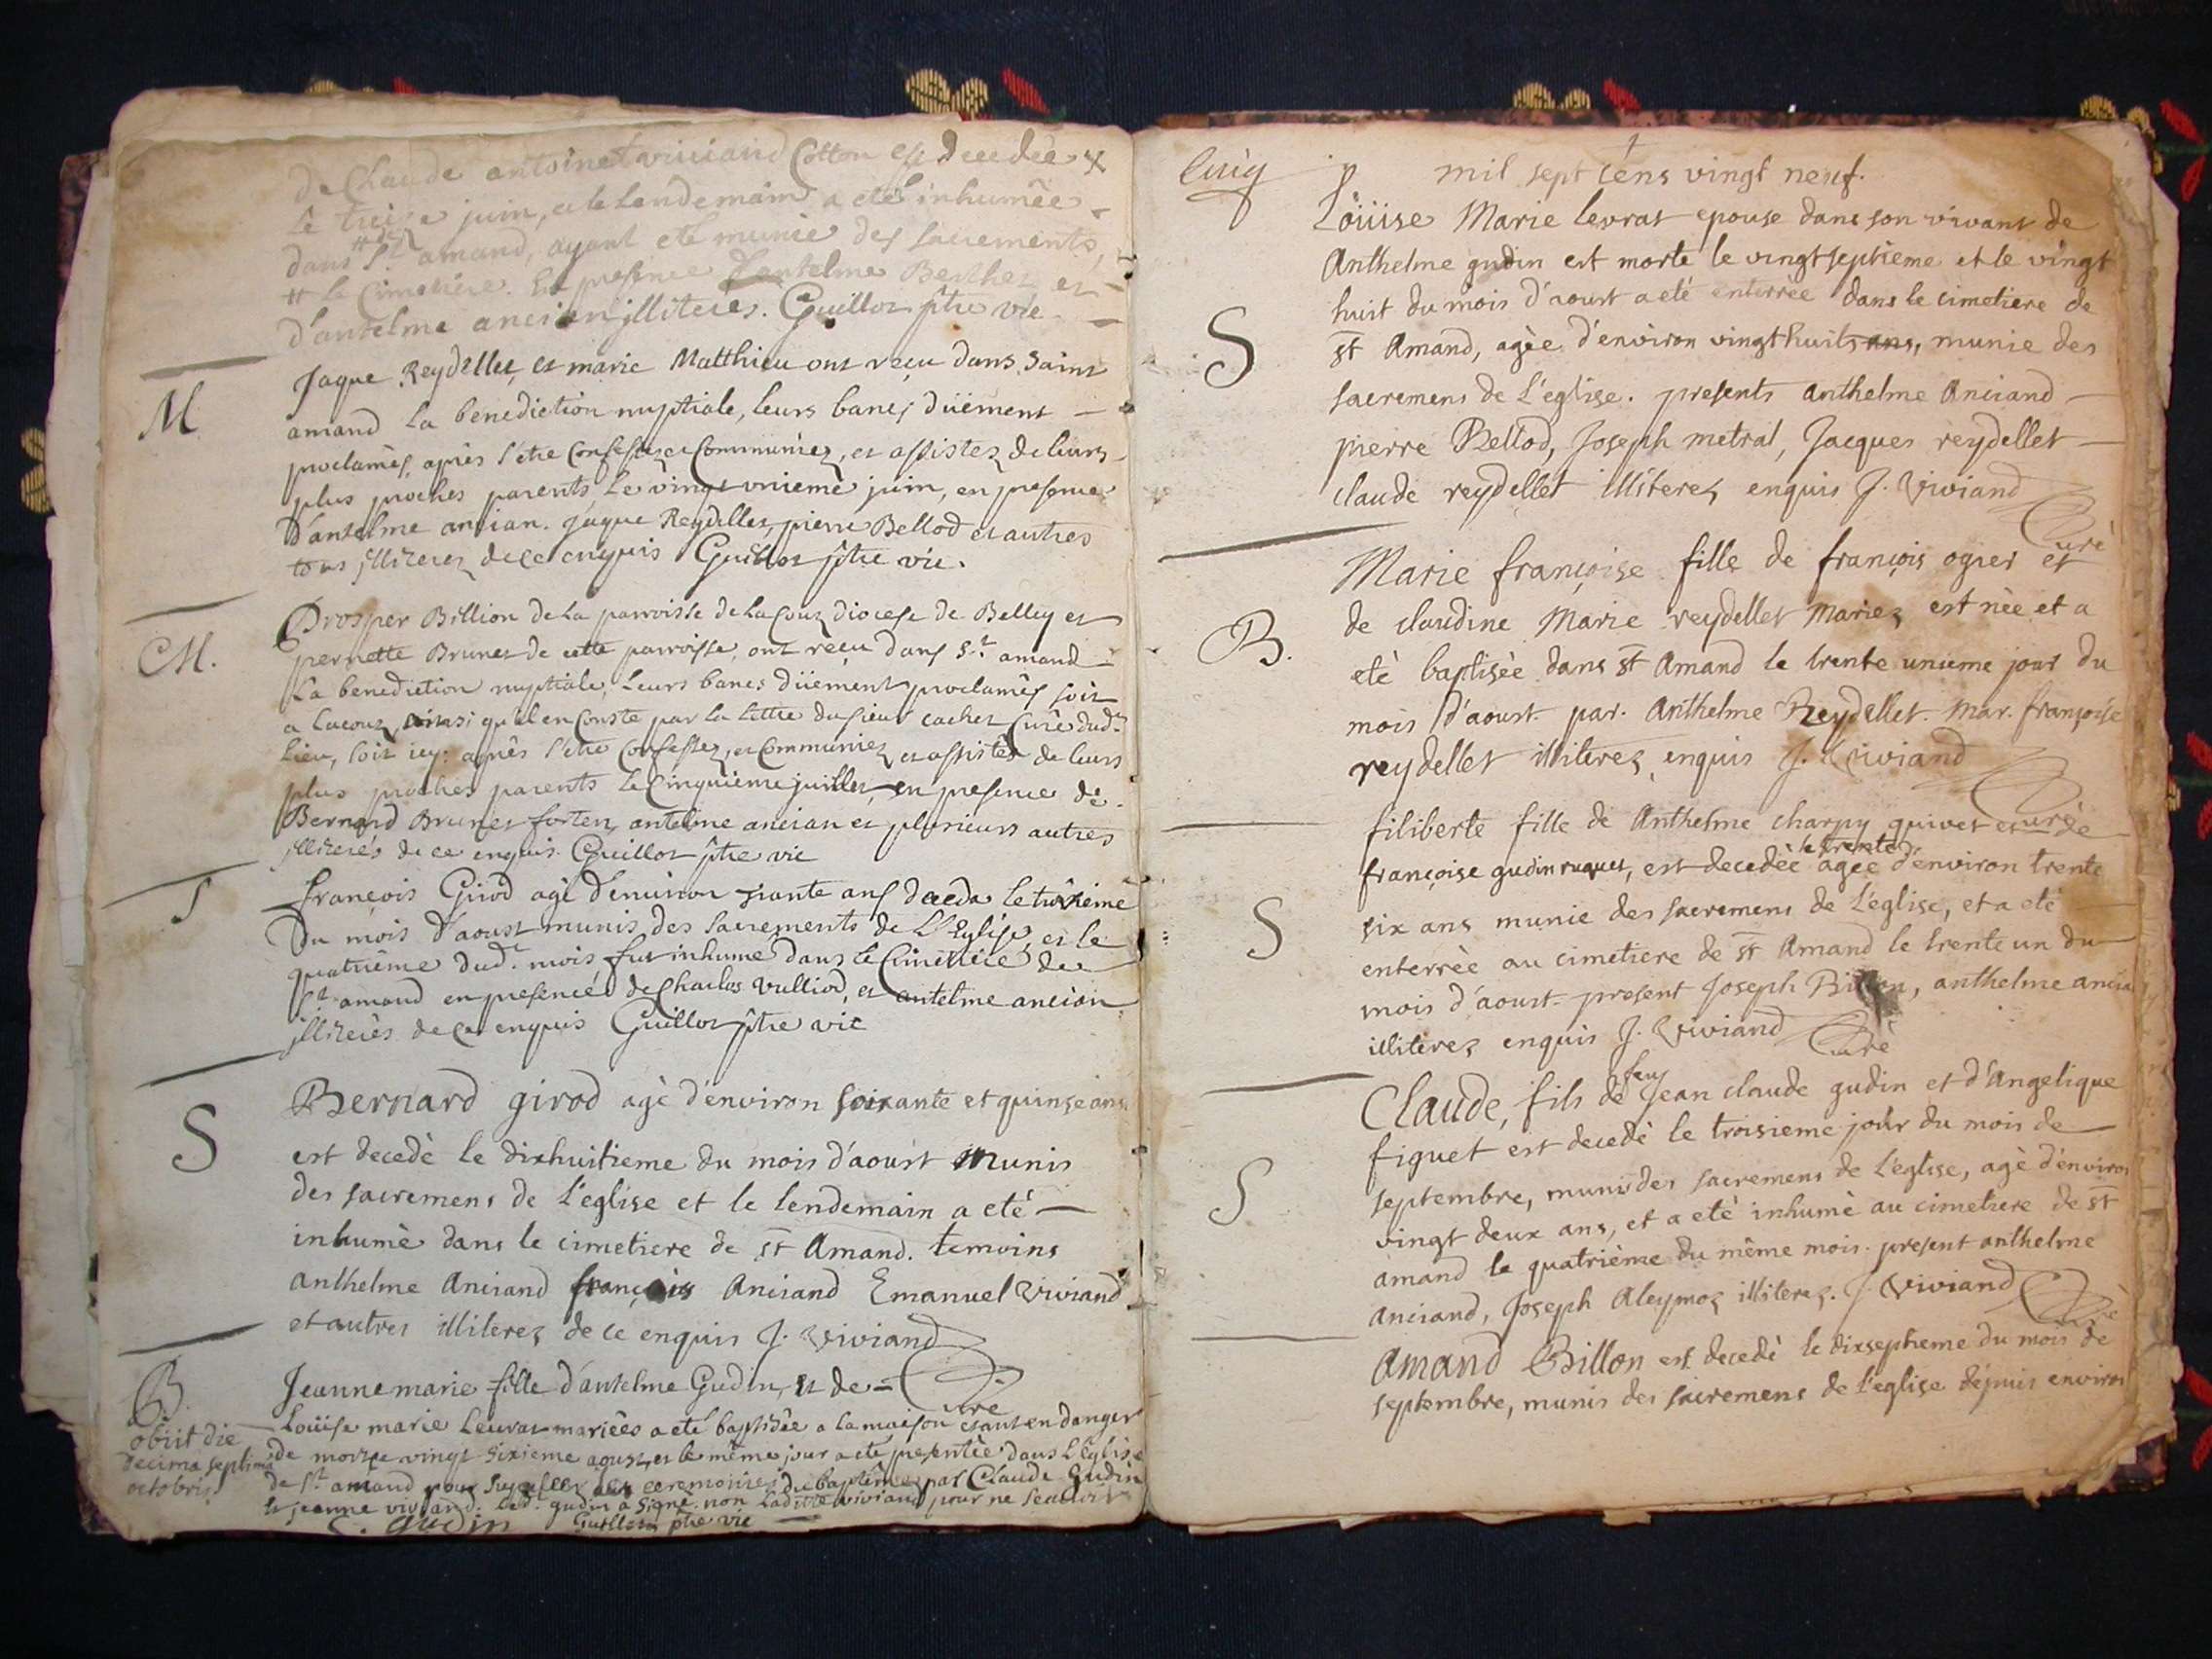 de Claude antoinet viviand Cotton est decedée
le treize juin, et le lendemain a eté inhumée
dans # St amand, ayant eté munie des sacrements,
# le Cimetière. En presence d'antelme Berthet et
d'antelme ancian illiteres. Guillot ptre vic
M
Jaque Reydellet, et marie Matthieu ont reçu dans Saint
amand la benediction nuptiale, leurs bancs düement
proclamés, après s'etre Confessez et Communiez, et assistez de leurs
plus proches parents, le vingt unieme juin, en presence
d'antelme ancian. Jaque Reydellet, pierre Bellod et autres
tous illiterez de ce enquis Guillot ptre vic.
M.
Prosper Billion de la parroisse de Lacouz diocese de Belley et
pernette Brunet de cette parroisse, ont reçu dans St. amand
la benediction nuptiale, leurs bancs düement proclamés soit
a Lacouz, ainsi qu'il en Conste par la lettre du sieur cachet Curé dud.
lieu, soit icy: après s'etre Confessez, et Communiez et assistez de leurs
plus proches parents le Cinquieme juillet, en presence de
Bernard Brunet antelme ancian et plusieurs autres
illiterés de ce enquis. Guillot ptre vic
S
françois Girod agé d'environ ans deceda le troisieme
Du mois d'aoust munis des sacrements de L'Eglise, et le
quatrième dud. mois fut inhumé dans le Cimetière de
St amand en presence de Charles Vulliod, et antelme ancian
illiterés de ce enquis Guillot ptre vic
S
Bernard girod agè d'environ soixante et quinse ans
est decedè le dixhuitieme du mois d'aoust munis
des sacremens de l'eglise et le lendemain a eté
inhumè dans le cimetiere de st Amand. temoins
anthelme Anciand françois Anciand Emanuel Viviand
et autres illiterez de ce enquis J. Viviand
Curé
B.
obiit die
decima septima
octobris
Jeanne marie fille d'antelme Gudin, et de
Loüise marie Leuvrat mariées a eté baptisée a la maison etant en danger
de mort le vingt sixieme aoust, et le même jour a eté presentée dans L'Eglise
de St. amand pour supléer aux ceremonies du baptême, par Claude Gudin
et jeanne viviand. led. gudin a signé. non laditte viviand pour ne scavoir
C. gudin Guillot ptre vic
Cinq
mil sept cens vingt neuf.
S
Loüise Marie levrat epouse dans son vivant de
Anthelme gudin est morte le vingtseptieme et le vingt
huit du mois d'aoust a eté enterrée dans le cimetiere de
st Amand, agèe d'environ vingthuit ans, munie des
sacremens de l'eglise. presents anthelme Anciand
pierre Bellod, Joseph metral, Jacques reydellet
claude reydellet illiterez enquis J. Viviand
Curè
B.
Marie françoise fille de françois ogier et
de claudine Marie reydellet Mariez est nèe et a
etè baptisèe dans st Amand le trente unieme jour du
mois d'aoust. par. Anthelme Reydellet. Mar. françoise
reydellet illiterez enquis J. Viviand
Curè
S
filiberte fille de Anthelme charpy et de
françoise gudin, est decedèe le trente agèe d'environ trente
six ans munie des sacremens de l'eglise, et a etè
enterrèe au cimetiere de st Amand le trente un du
mois d'aoust. present Joseph Billon, anthelme ancia
illiterez enquis J. Viviand Curè
S
Claude, fils de feu Jean claude gudin et d'Angelique
figuet est decedè le troisieme jour du mois de
septembre, munis des sacremens de l'eglise, agè d'environ
vingt deux ans, et a etè inhumè au cimetiere de st
amand le quatrième du même mois. present anthelme
Anciand, Joseph Aleymoz illiterez. J. Viviand Curè
Amand Billon est decedè le dixseptieme du mois de
septembre, munis des sacremens de l'eglise depuis environ